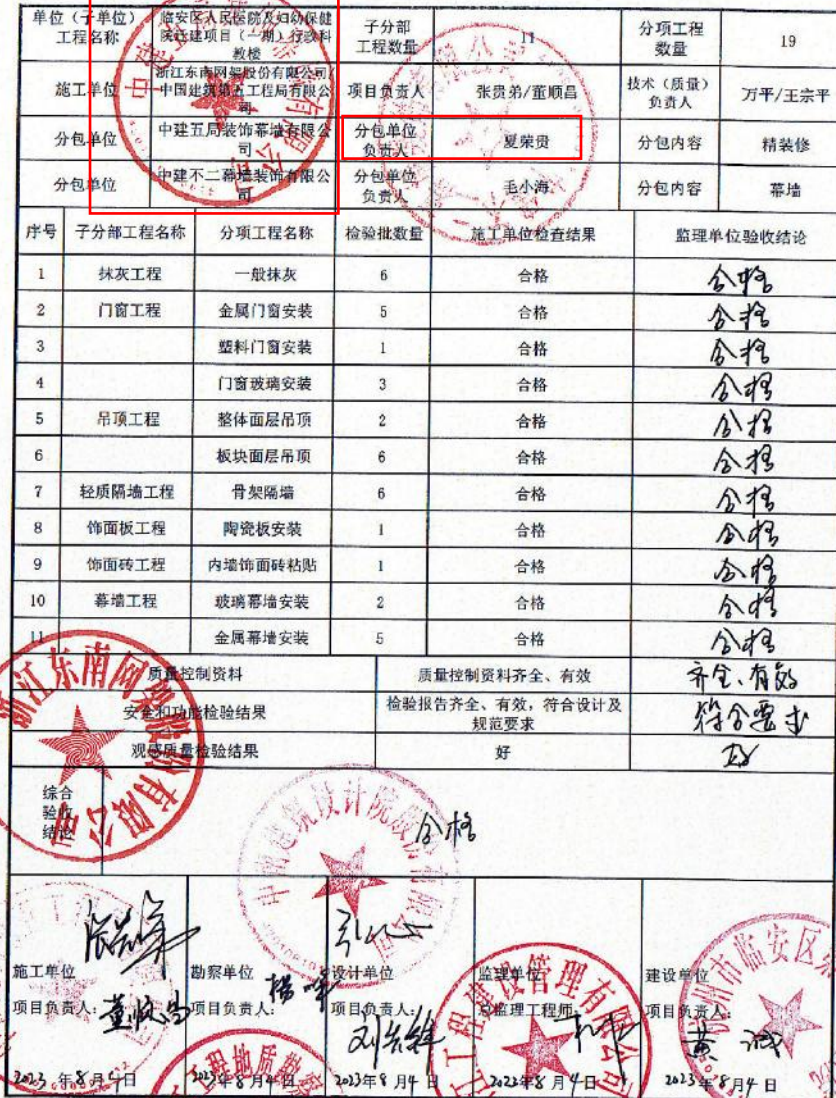 单位（子单位）工程名称 临安区人民医院及妇幼保健院迁建项目（一期）行政科教楼 子分部工程数量 11 分项工程数量 19
施工单位 浙江东南网架股份有限公司/中国建筑第五工程局有限公司 项目负责人 张贵弟/董顺昌 技术（质量）负责人 万平/王宗平
分包单位 中建五局装饰幕墙有限公司 分包单位负责人 夏荣贵 分包内容 精装修
分包单位 中建不二幕墙装饰有限公司 分包单位负责人 毛小海 分包内容 幕墙
序号 子分部工程名称 分项工程名称 检验批数量 施工单位检查结果 监理单位验收结论
1 抹灰工程 一般抹灰 6 合格 合格
2 门窗工程 金属门窗安装 5 合格 合格
3 塑料门窗安装 1 合格 合格
4 门窗玻璃安装 3 合格 合格
5 吊顶工程 整体面层吊顶 2 合格 合格
6 板块面层吊顶 6 合格 合格
7 轻质隔墙工程 骨架隔墙 6 合格 合格
8 饰面板工程 陶瓷板安装 1 合格 合格
9 饰面砖工程 内墙饰面砖粘贴 1 合格 合格
10 幕墙工程 玻璃幕墙安装 2 合格 合格
11 金属幕墙安装 5 合格 合格
质量控制资料 质量控制资料齐全、有效 齐全、有效
安全和功能检验结果 检验报告齐全、有效，符合设计及规范要求 符合要求
观感质量检验结果 好 好
浙江东南网架股份有限公司
综合验收结论 合格
中南建筑设计院股份有限公司
施工单位 勘察单位 设计单位 监理单位 建设单位
项目负责人：董顺昌 项目负责人： 项目负责人： 总监理工程师： 项目负责人：
2023年8月4日 2023年8月4日 2023年8月4日 2023年8月4日 2023年8月4日